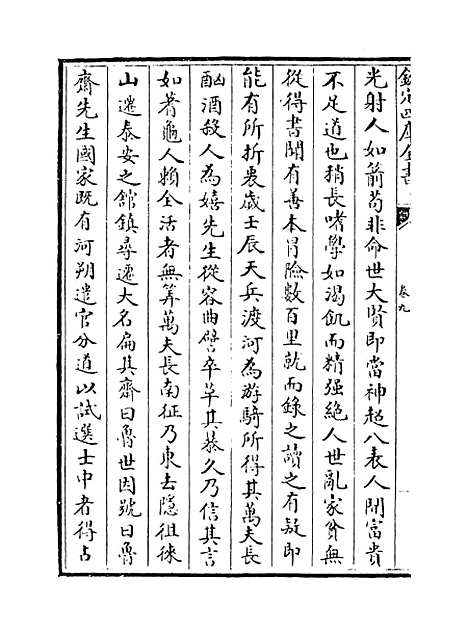 欽定四庫全書
卷九
光射人如箭苟非命世大賢即當神超八表人間富貴
不足道也稍長嗜學如渴飢而精强絕人世亂家貧無
從得書聞有善本冒險數百里就而錄之讀之有疑即
能有所折衷歲壬辰天兵渡河為游騎所得其萬夫長
酗酒殺人為嬉先生從容曲譬卒革其暴久乃信其言
如蓍龜人賴全活者無筭萬夫長南征乃東去隱徂徠
山遷泰安之館鎮尋遷大名扁其齋曰魯世因號曰魯
齋先生國家既有河朔遣官分道以試選士中者得占